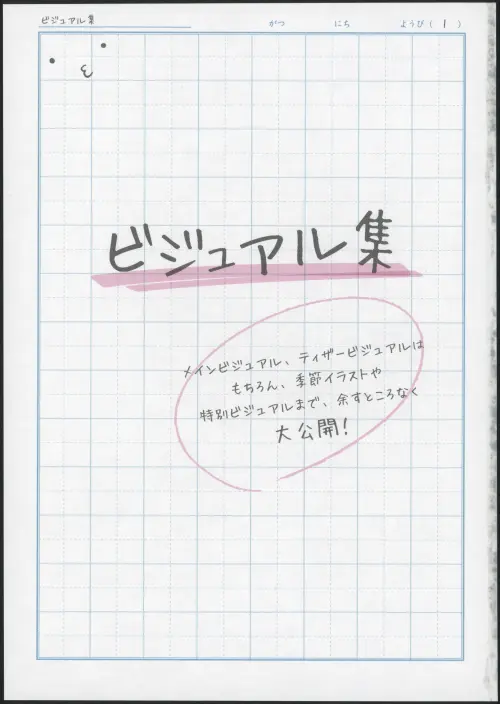 ビジュアル集
がつ　にち　ようび（ 1 ）
ビジュアル集
メインビジュアル、ティザービジュアルは
もちろん、季節イラストや
特別ビジュアルまで、余すところなく
大公開！